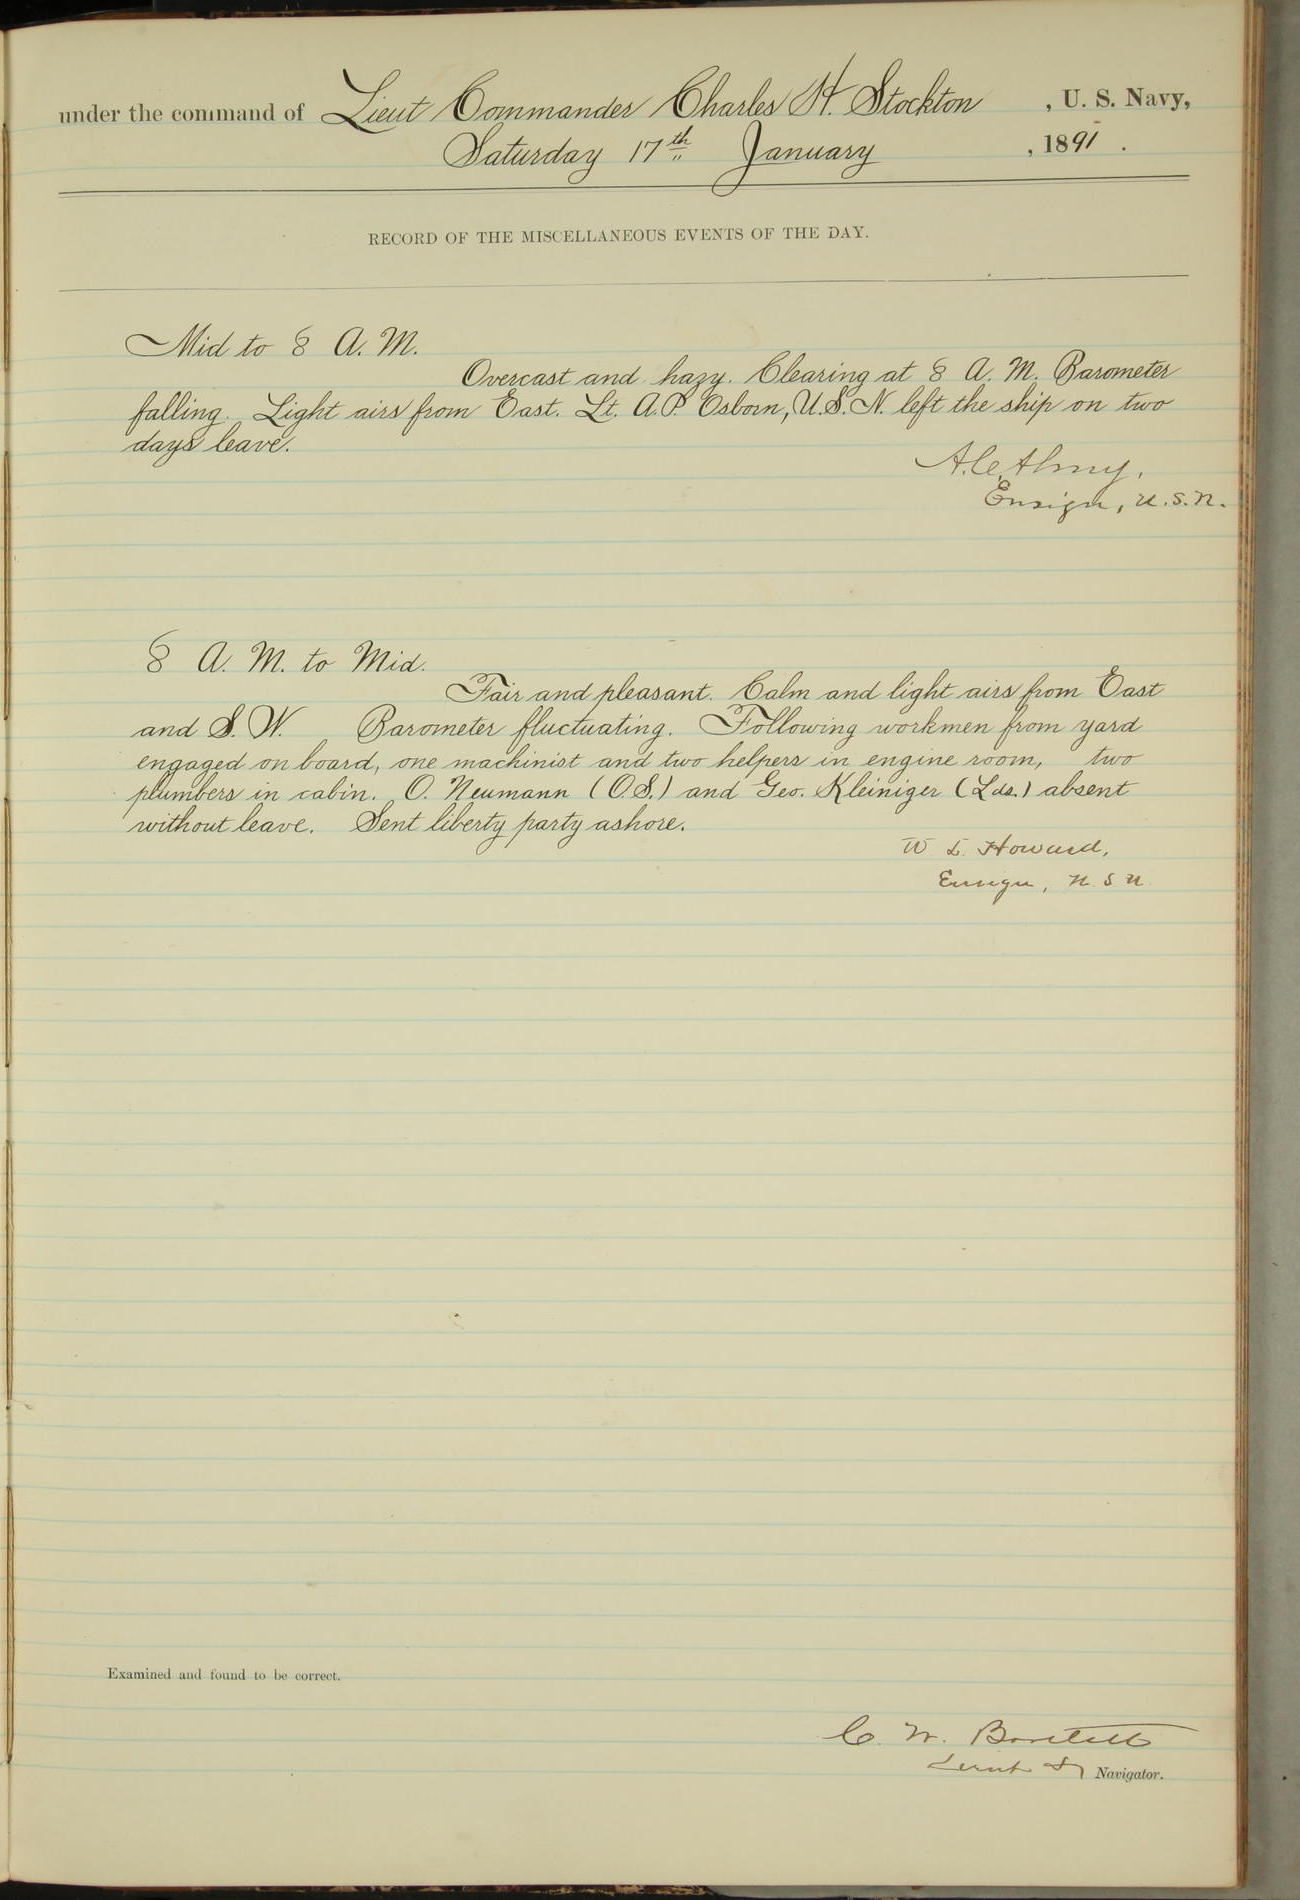 under the command of Lieut Commander Charles H. Stockton , U. S. Navy,
Saturday 17th January , 1891 .
RECORD OF THE MISCELLANEOUS EVENTS OF THE DAY.
Mid to 8 A. M.
Overcast and hazy. Clearing at 8 A. M. Barometer
falling. Light airs from East. Lt. A.P. Osborn, U.S.N. left the ship on two
days leave.
A.C. Almy,
Ensign, U.S.N.
8 A. M. to Mid.
Fair and pleasant. Calm and light airs from East
and S. W. Barometer fluctuating. Following workmen from yard
engaged on board, one machinist and two helpers in engine room, two
plumbers in cabin. O. Neumann (O.S.) and Geo. Kleiniger (Lds.) absent
without leave. Sent liberty party ashore.
W L Howard,
Ensign, U S N
Examined and found to be correct.
C. W. Bartlett
Lieut & Navigator.